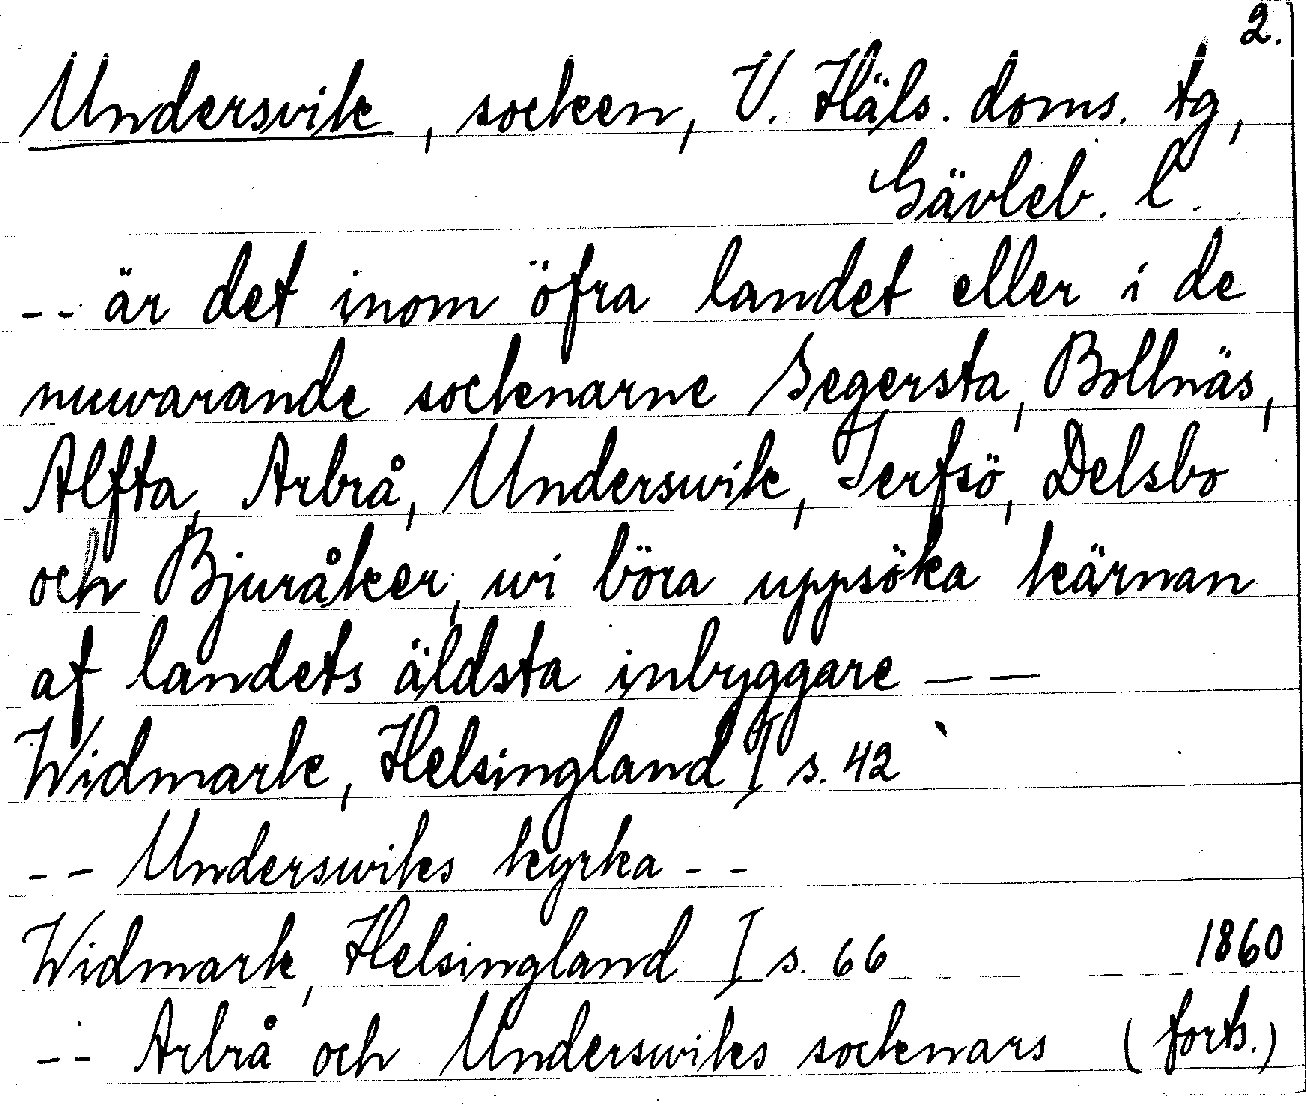 2.
Undersvik, socken, V. Häls. doms. tg,
Gävleb. l.
-- är det inom öfra landet eller i de
nuwarande socknarne Segersta, Bollnäs,
Alfta, Arbrå, Underswik, Jerfsö, Delsbo
och Bjuråker, wi böra uppsöka kärnan
af landets äldsta inbyggare --
Widmark, Helsingland I s. 42
-- Underswiks kyrka --
Widmark, Helsingland I s. 66 1860
-- Arbrå och Underswiks socknars (forts.)